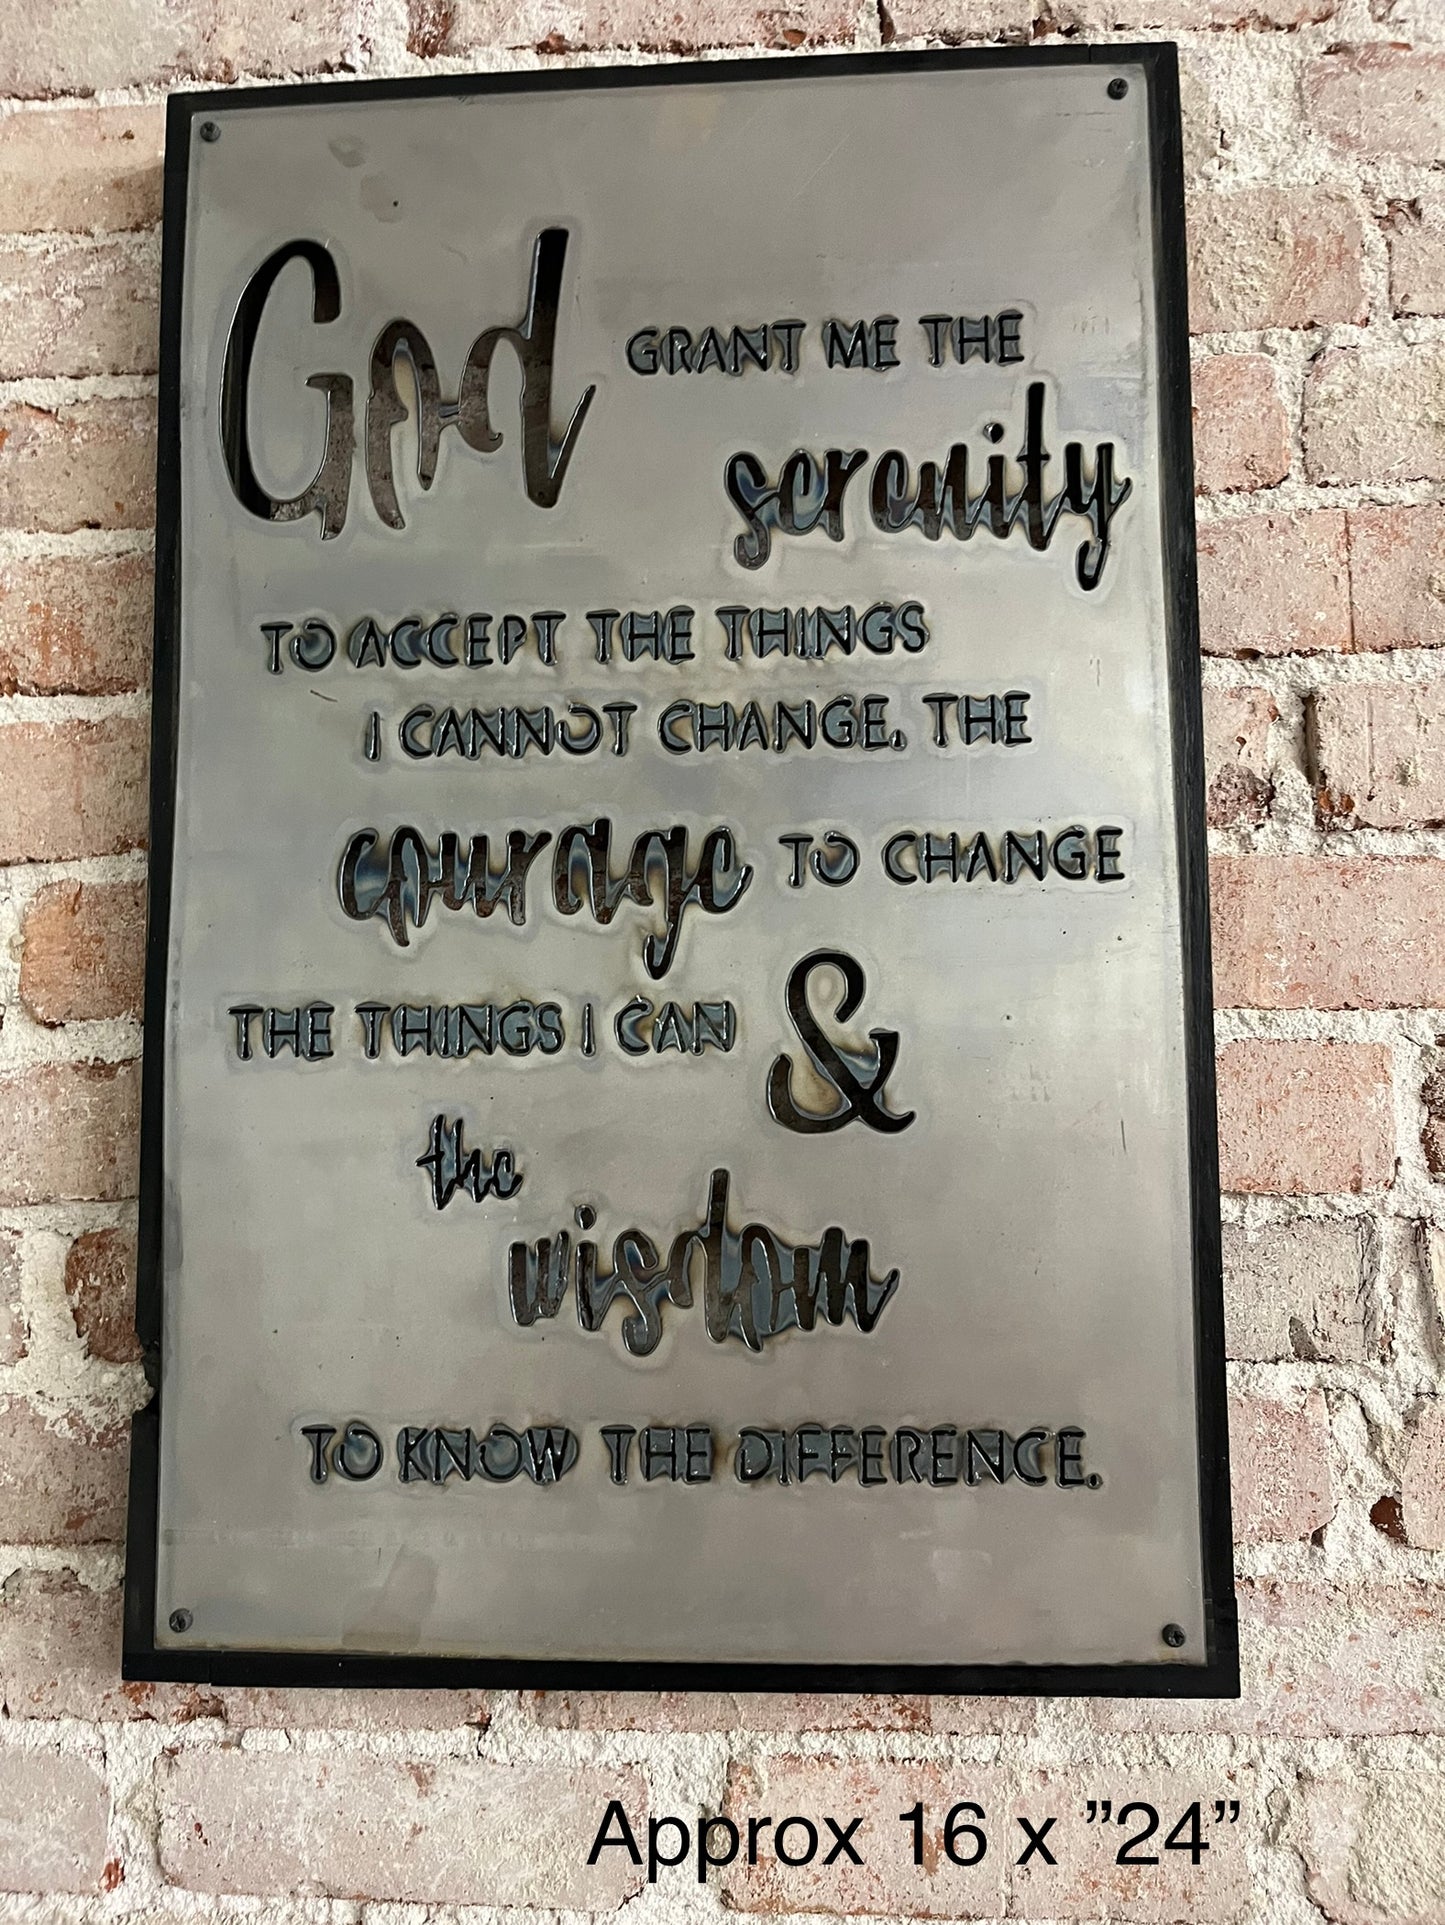 God GRANT ME THE
serenity
TO ACCEPT THE THINGS
I CANNOT CHANGE. THE
courage TO CHANGE
THE THINGS I CAN &
the
wisdom
TO KNOW THE DIFFERENCE.
Approx 16 x ”24”